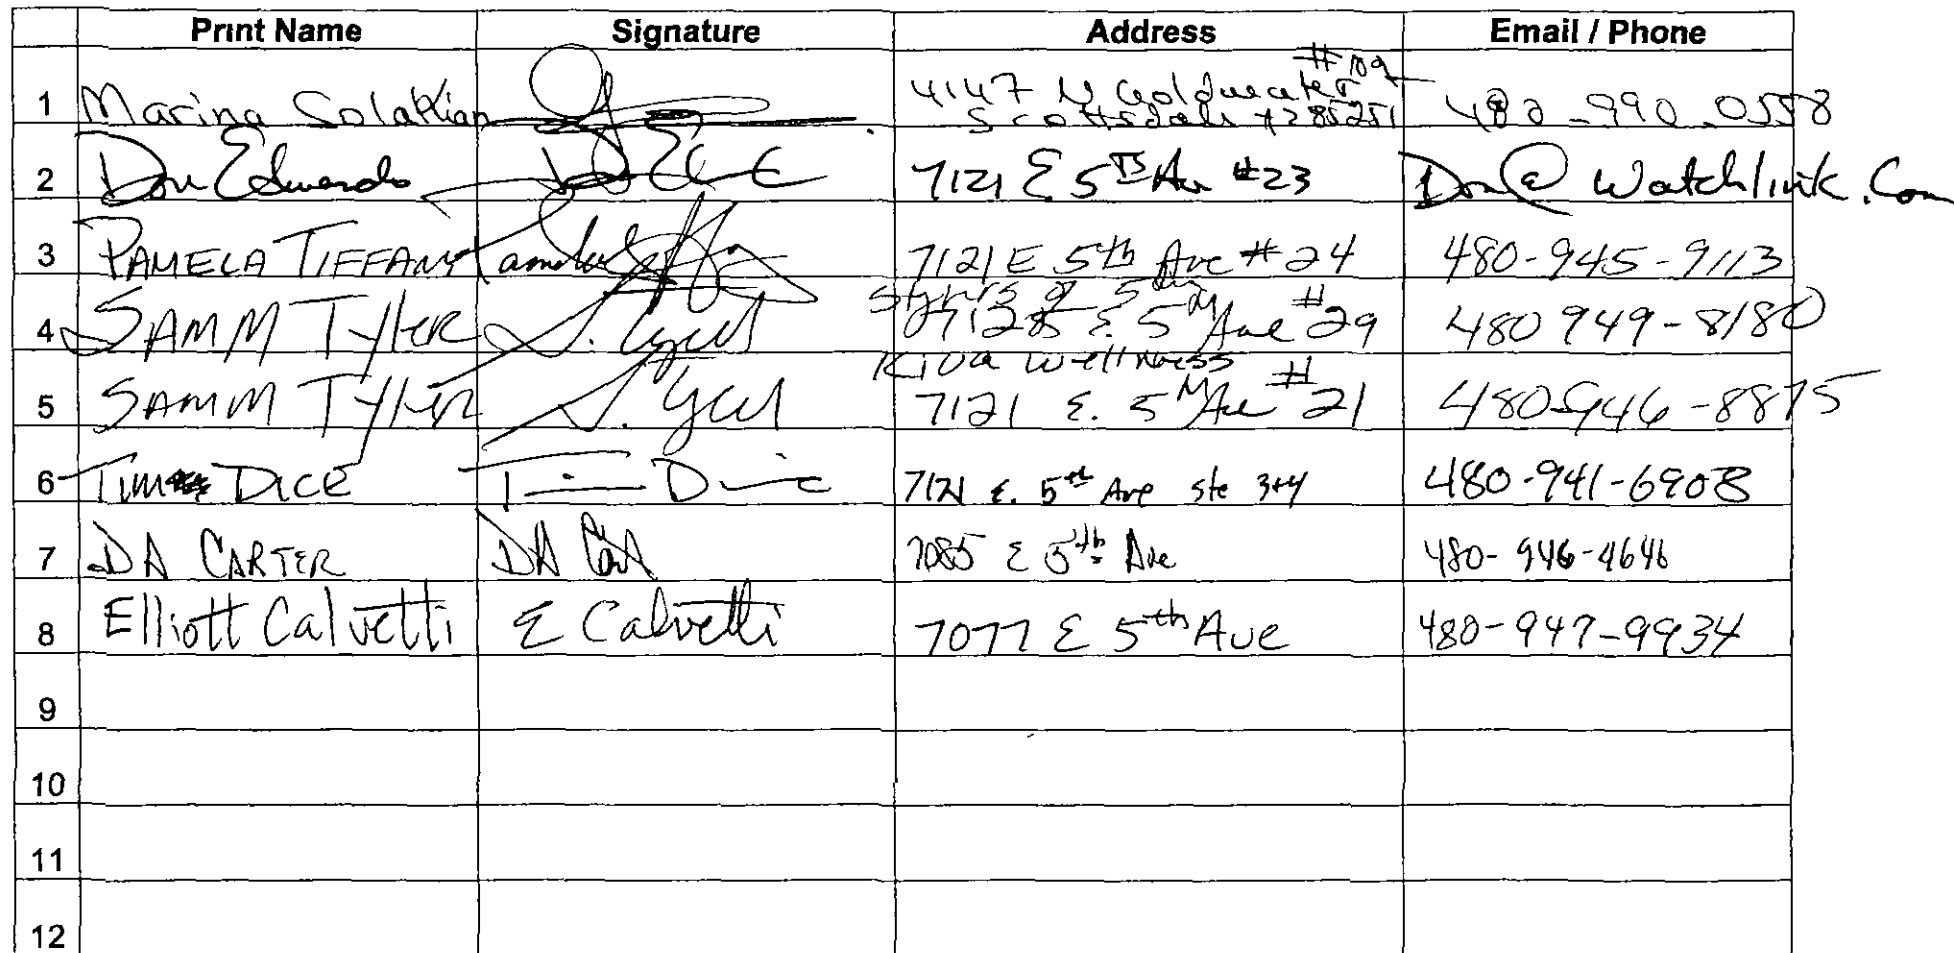 Print Name Signature Address Email / Phone
#109
1 Marina Solakian 4147 N Goldwater
Scottsdale AZ 85251 480-990-0558
2 Don Edwards 7121 E 5th Av #23 Don@Watchlink.Com
3 PAMELA TIFFANY Pamela 7121 E 5th Ave #24 480-945-9113
Styles of 5th
4 SAMM TYLER S. Tyler 7128 E. 5th Ave #29 480 949-8180
Kiva Wellness
5 SAMM TYLER S. Tyler 7121 E. 5th Ave #21 480-946-8875
6 TIM DICE Tim D 7121 E. 5th Ave Ste 3+4 480-941-6908
7 DA CARTER DA 7085 E 5th Ave 480-946-4646
8 Elliott Calvetti E Calvetti 7077 E 5th Ave 480-947-9934
9
10
11
12